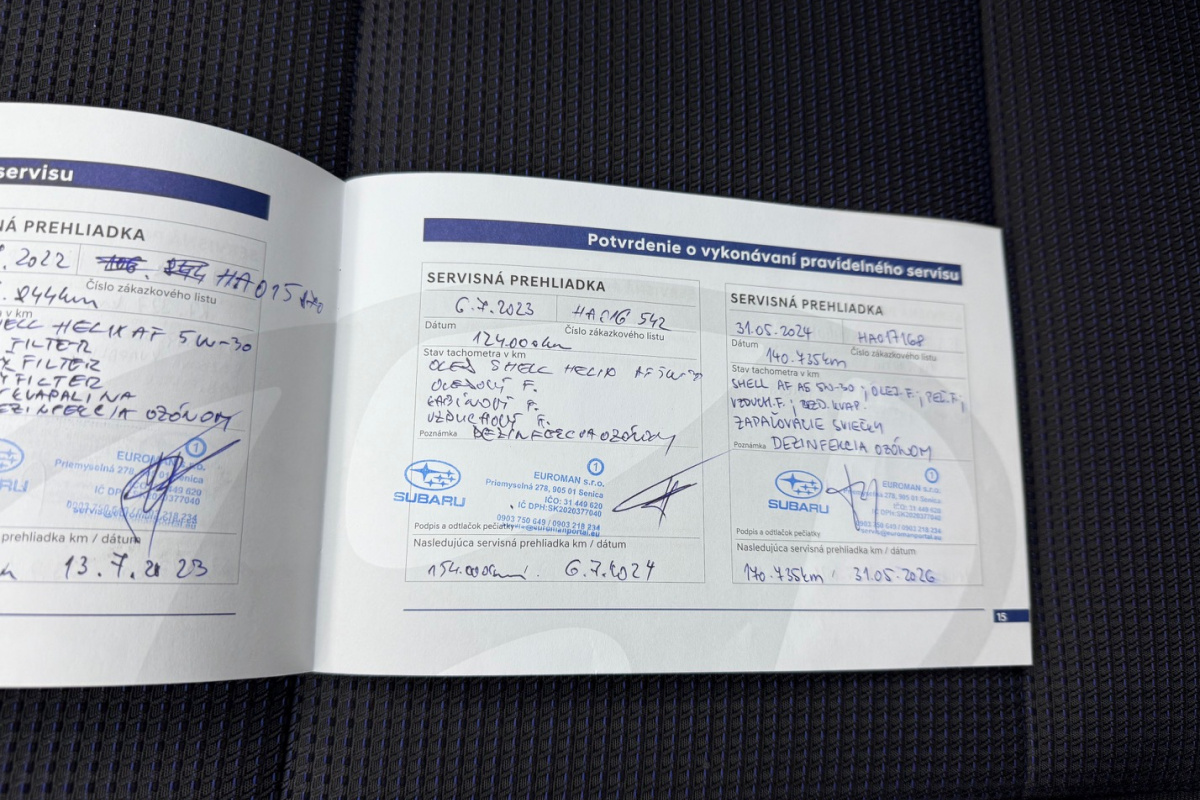 servisu
NÁ PREHLIADKA
.2022
HA015
Číslo zákazkového listu
244km
a v km
ELL HELIX AF 5W-30
FILTER
FILTER
FILTER
KVAPALINA
EZINFEKCIA OZÓNOM
1
EUROMAN s.r.o.
Priemyselná 278,
IČO: 31 449 620
IČ DPH:
0903 750 649 / 0903 218 234
servis@euromanportal.eu
prehliadka km / dátum
13.7.2023
Potvrdenie o vykonávaní pravidelného servisu
SERVISNÁ PREHLIADKA
6.7.2023
HA016 542
Dátum
Číslo zákazkového listu
124.000km
Stav tachometra v km
OLEJ SHELL HELIX AF 5W-30
OLEJOVÝ F.
KABÍNOVÝ F.
VZDUCHOVÝ F.
Poznámka
DEZINFEKCIA OZÓNOM
SUBARU
1
EUROMAN s.r.o.
Priemyselná 278, 905 01 Senica
IČO: 31 449 620
IČ DPH:SK2020377040
0903 750 649 / 0903 218 234
servis@euromanportal.eu
Podpis a odtlačok pečiatky
Nasledujúca servisná prehliadka km / dátum
154.000km
6.7.2024
SERVISNÁ PREHLIADKA
31.05.2024
HA017168
Dátum
Číslo zákazkového listu
140.735km
Stav tachometra v km
SHELL AF A5 5W-30; OLEJ.F.; PEĽ.F.;
VZDUCH.F.; BRZD. KVAP.
ZAPAĽOVACIE SVIEČKY
Poznámka
DEZINFEKCIA OZÓNOM
SUBARU
1
EUROMAN s.r.o.
Priemyselná 278, 905 01 Senica
IČO: 31 449 620
IČ DPH:SK2020377040
0903 750 649 / 0903 218 234
servis@euromanportal.eu
Podpis a odtlačok pečiatky
Nasledujúca servisná prehliadka km / dátum
170.735km / 31.05.2026
15